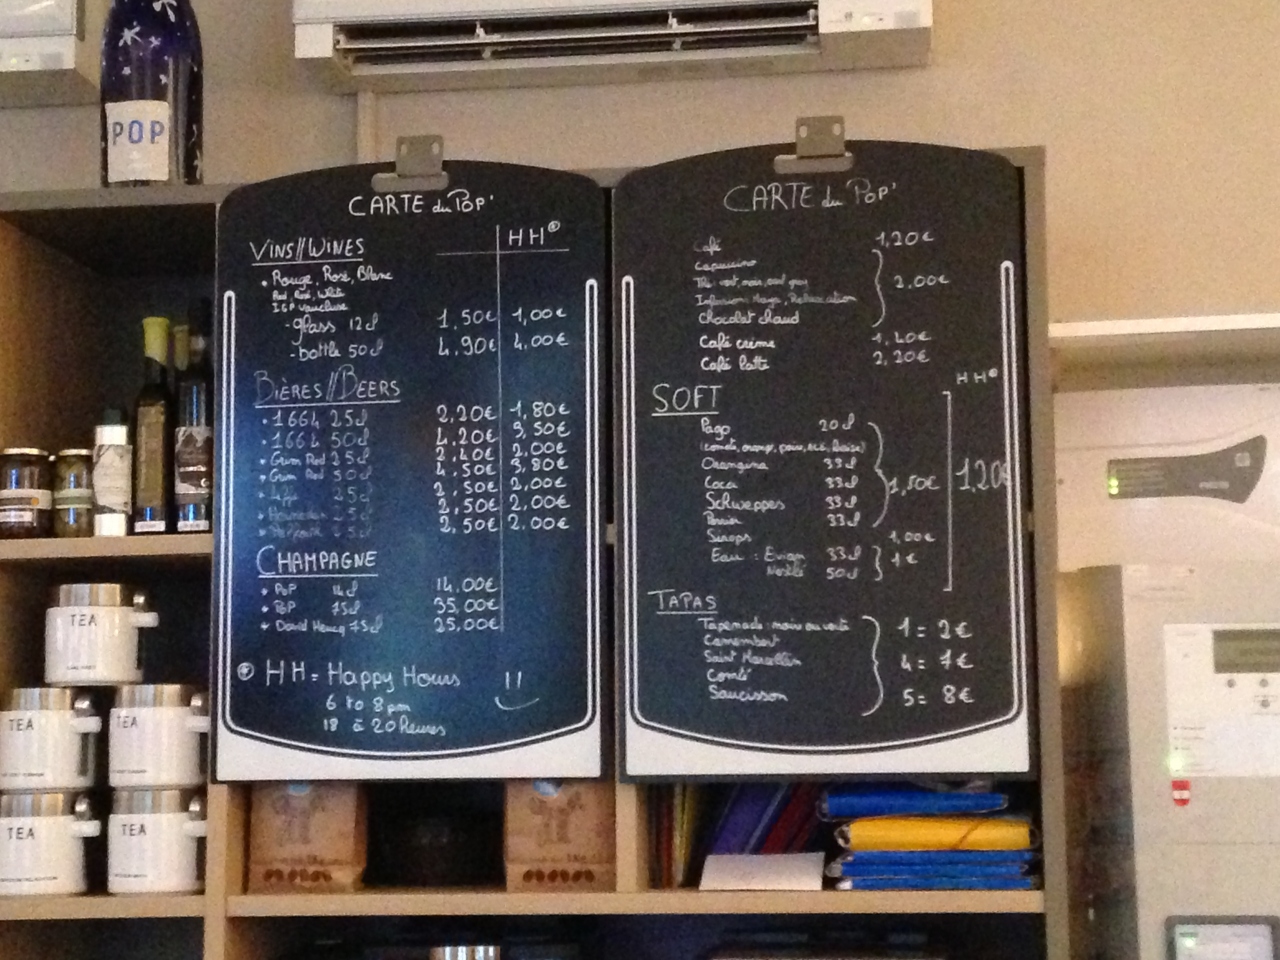 POP
CARTE du POP'
VINS//WINES HH*
• Rouge, Rosé, Blanc
Red, Rosé, White
IGP Vaucluse
- glass 12cl 1,50€ 1,00€
- bottle 50cl 4,90€ 4,00€
BIÈRES//BEERS
• 1664 25cl 2,20€ 1,80€
• 1664 50cl 4,20€ 3,50€
• Grim Red 25cl 2,40€ 2,00€
• Grim Red 50cl 4,50€ 3,80€
• Leffe 25cl 2,50€ 2,00€
25cl 2,50€ 2,00€
2,50€ 2,00€
CHAMPAGNE
• POP 14,00€
• POP 75cl 35,00€
• David 75cl 25,00€
* HH = Happy Hours
6 to 8 pm
18 à 20 heures
CARTE du POP'
Café 1,20€
Capuccino
Thé vert, noir, earl grey 2,00€
Infusion
Chocolat chaud
Café crème 1,40€
Café latte 2,20€
SOFT HH*
Pago 20cl
Orangina 33cl
Coca 33cl 1,50€ 1,20€
Schweppes 33cl
Perrier 33cl
Sirops 1,00€
Eau : Evian 33cl 1€
50cl
TAPAS
Tapenade : noire ou verte 1 = 2€
Camembert
Saint Marcellin 4 = 7€
Comté
Saucisson 5 = 8€
TEA
TEA
TEA
TEA
TEA